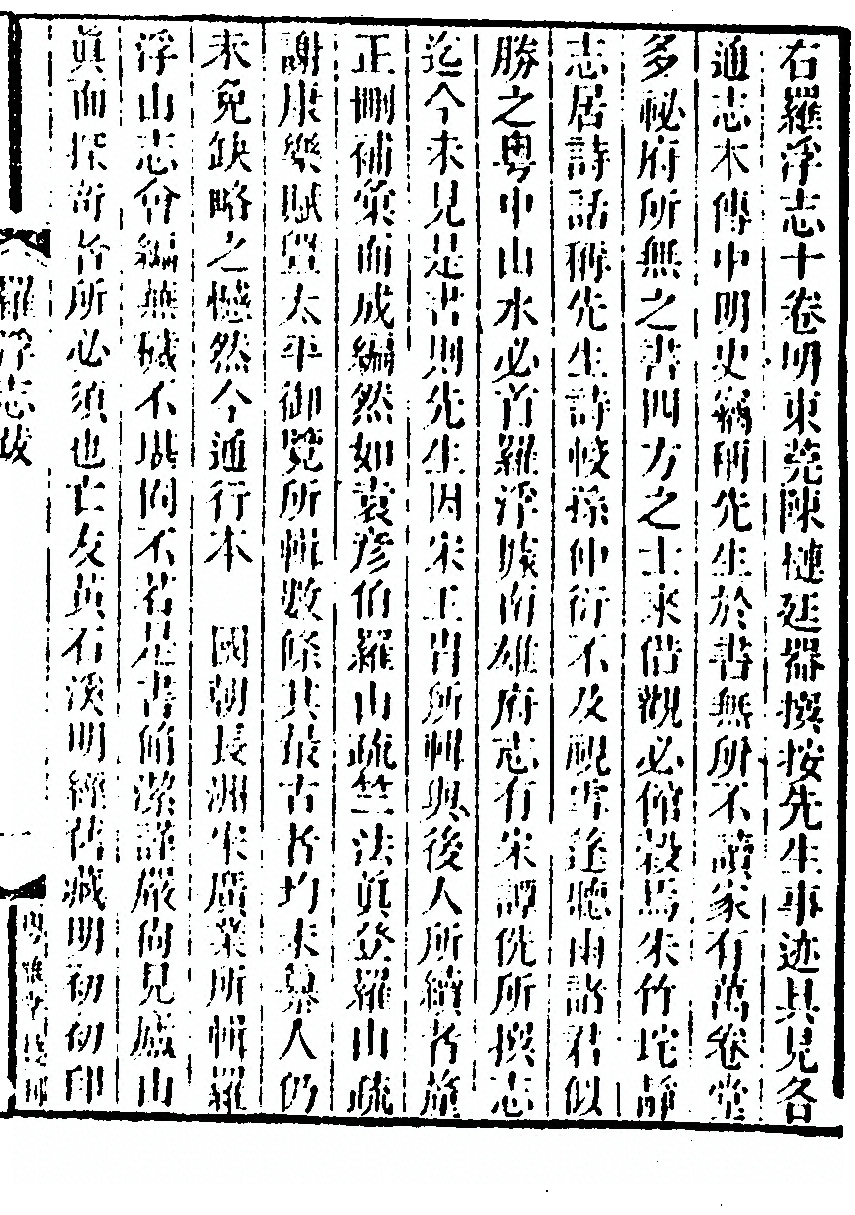 右羅浮志十卷明東莞陳槤廷器撰按先生事迹具見各
通志本傳中明史竊稱先生於書無所不讀家有萬卷堂
多祕府所無之書四方之士來借觀必館穀焉朱竹垞靜
志居詩話稱先生詩較孫仲衍不及視李逵聽雨諸君似
勝之粵中山水必首羅浮據南雄府志有宋譚侁所撰志
迄今未見是書則先生因宋王胄所輯與後人所續者釐
正刪補彙而成編然如袁彥伯羅山疏竺法真登羅山疏
謝康樂賦暨太平御覽所輯數條其最古者均未纂入仍
未免缺略之憾然今通行本 國朝長洲宋廣業所輯羅
浮山志會編蕪穢不堪問不若是書脩潔謹嚴尚見廬山
真面探奇者所必須也亡友黃石溪明經舊藏明初初印
羅浮志跋
一
粵雅堂叢書